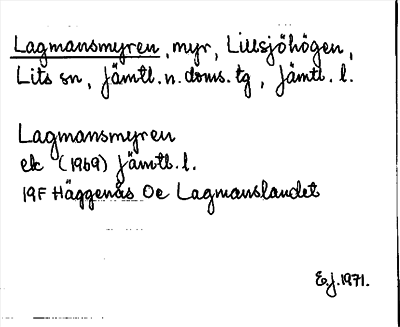 Lagmansmyren, myr, Lillsjöhögen,
Lits sn, Jämtl. n. doms. tg, Jämtl. l.
Lagmansmyren
ek (1969) Jämtl. l.
19F Häggenås Oe Lagmanslandet
E.J. 1971.